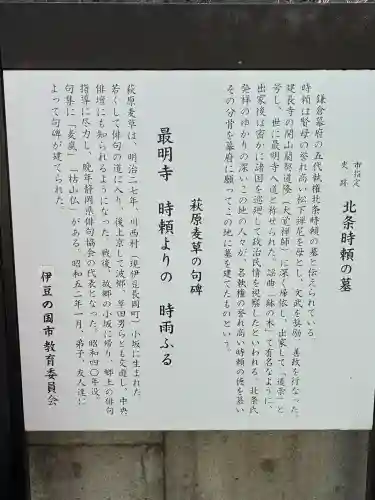 市指定
史跡
北条時頼の墓
鎌倉幕府の五代執権北条時頼の墓と伝えられている。
時頼は賢母の誉れ高い松下禅尼を母とし、文武を奨励、善政を行なった。
建長寺の開山蘭渓道隆(大覚禅師)に深く帰依し、出家して「道崇」と
号し、世に最明寺入道と称せられた。謡曲「鉢の木」で有名なように、
出家後は密かに諸国を巡廻して政治民情を視察したといわれる。北条氏
発祥のゆかりの深いこの地の人々が、名執権の誉れ高い時頼の徳を慕い
その分骨を幕府に願ってこの地に墓を建てたものという。
萩原麦草の句碑
最明寺 時頼よりの 時雨ふる
萩原麦草は、明治二七年、川西村(現伊豆長岡町)小坂に生まれた
若くして俳句の道に入り、後上京して波郷、草田男らとも交遊し、中央
俳壇にも知られるようになった。戦後、故郷の小坂に帰り、郷土の俳句
指導に尽力し、晩年静岡県俳句協会の代表となった。昭和四〇年没。
句集に「麦嵐」「枯山仏」がある。昭和五二年一月、弟子、友人達に
よって句碑が建てられた。
伊豆の国市教育委員会